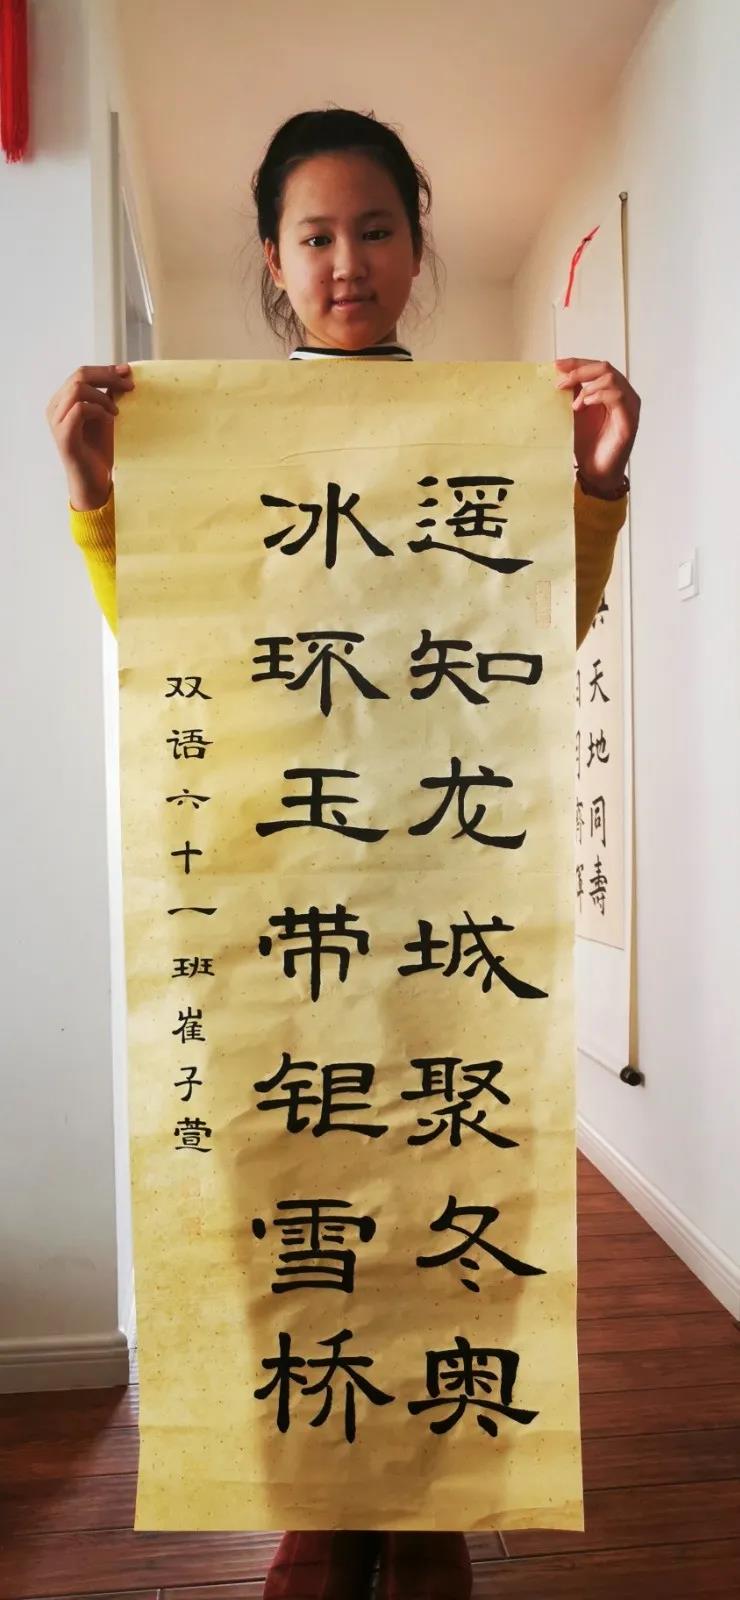 遥知龙城聚冬奥
冰环玉带银雪桥
双语六十一班崔子萱
天地同壽